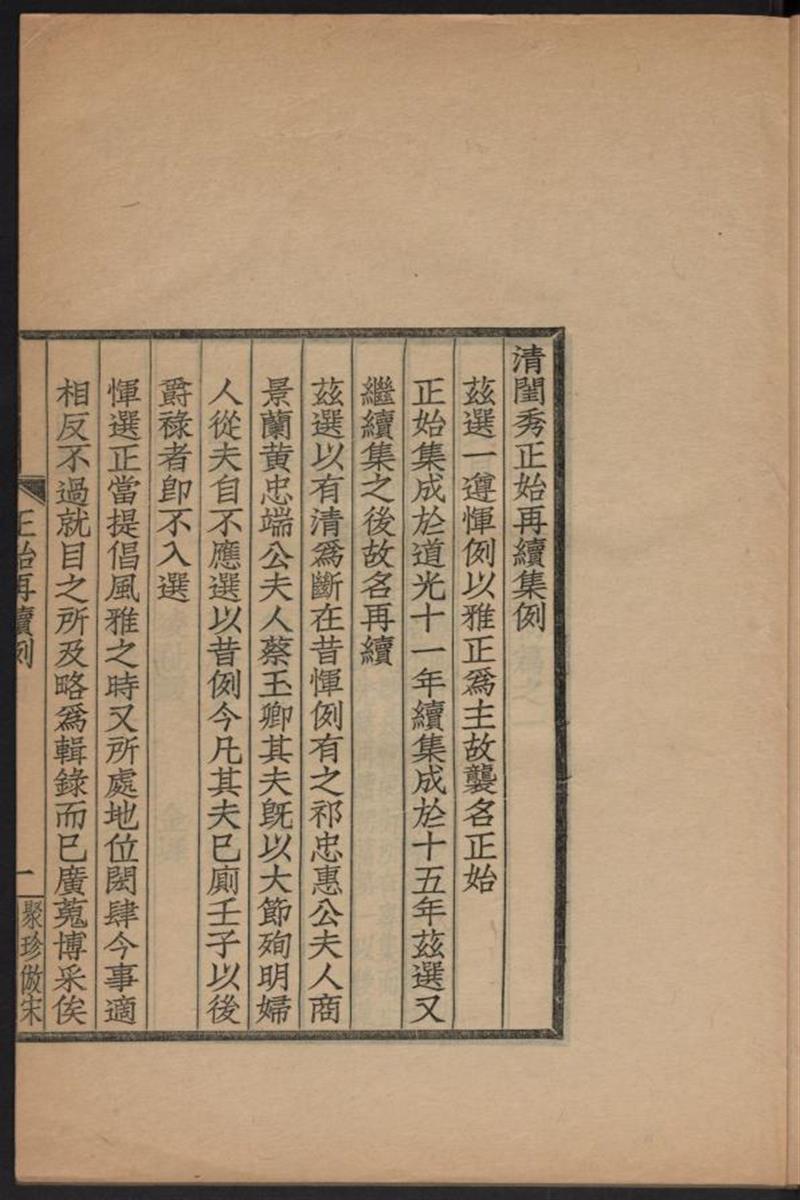 清閨秀正始再續集例
茲選一遵惲例以雅正爲主故襲名正始
正始集成於道光十一年續集成於十五年茲選又
繼續集之後故名再續
茲選以有清爲斷在昔惲例有之祁忠惠公夫人商
景蘭黄忠端公夫人蔡玉卿其夫旣以大節殉明婦
人從夫自不應選以昔例今凡其夫已廁壬子以後
爵祿者卽不入選
惲選正當提倡風雅之時又所處地位閎肆今事適
相反不過就目之所及略爲輯錄而已廣蒐博采俟
正始再續例
一
聚珍倣宋